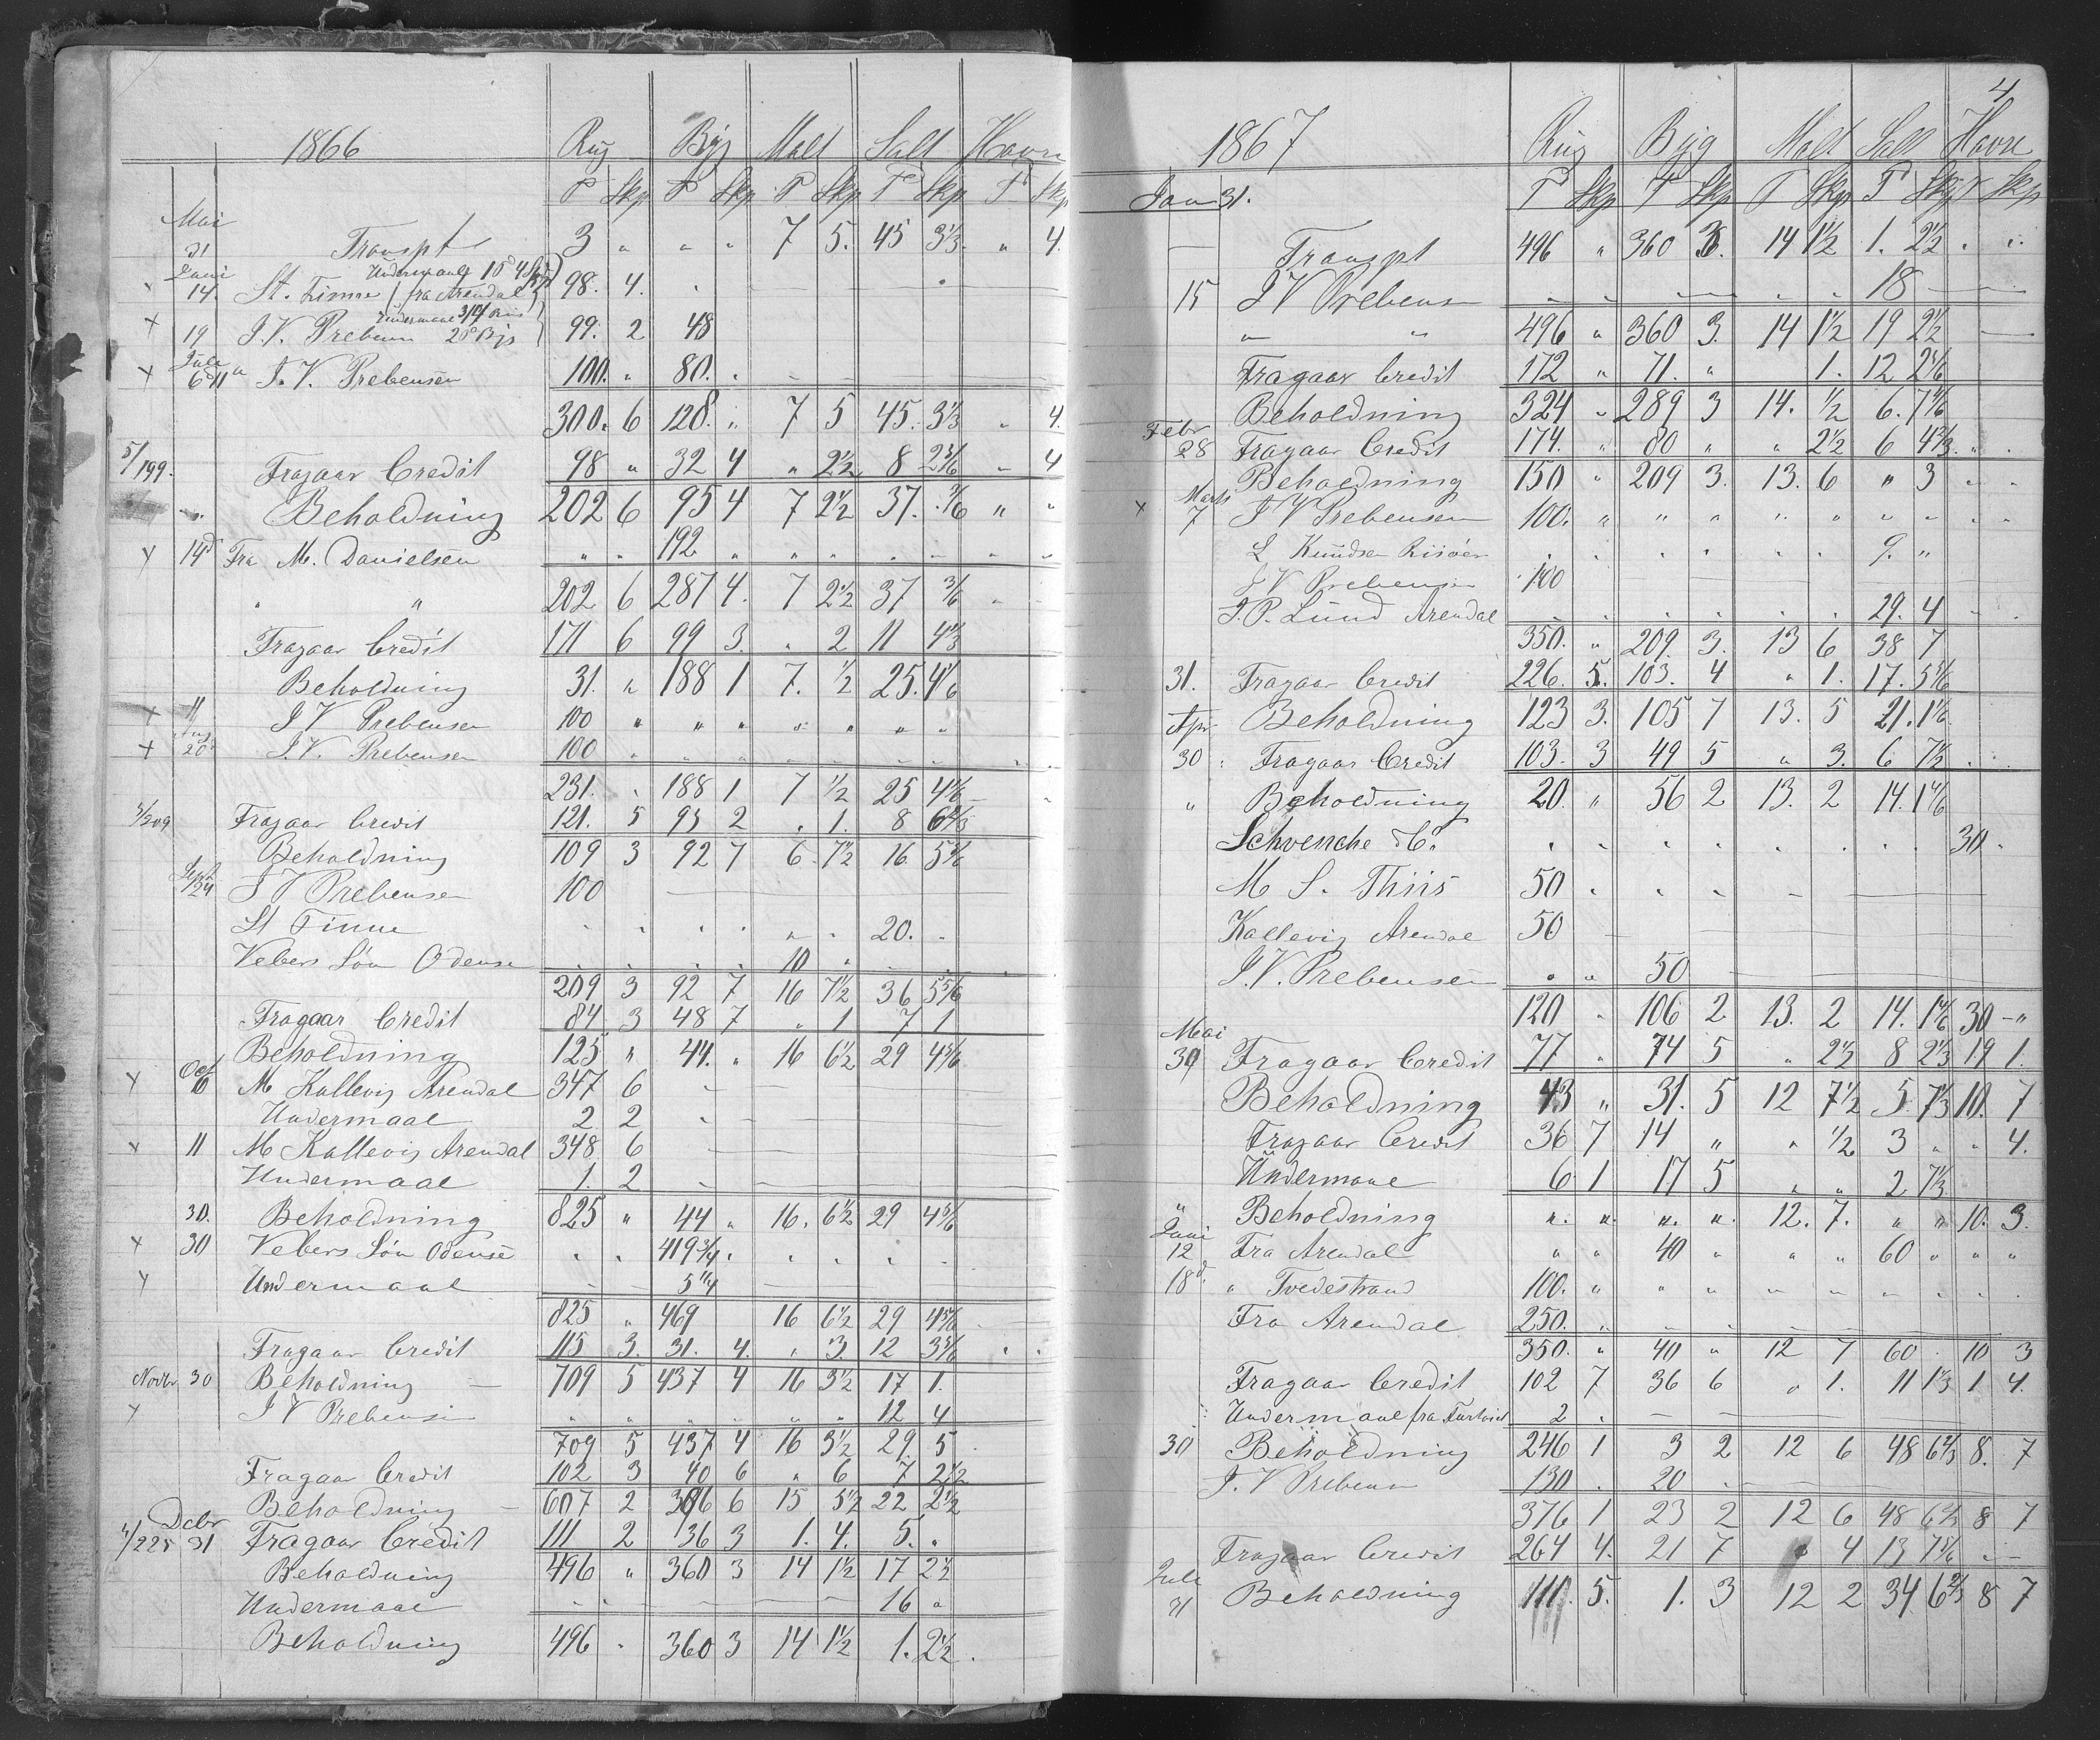 1866 Rug Byg Malt Salt Havre
T Skp T Skp T Skp T Skp T Skp
Mai
31 Transpt 3 " " " 7 5. 45 3 1/3 " 4.
Juni Undermaal
14. St. Finne fra Arendal 98. 4.
Undermaal
19 J. V. Prebensen 99. 2 48
Juli
6 J. V. Prebensen 100. " 80. "
300. 6 128. " 7 5 45. 3 1/3 " 4.
5/199. Fragaar Credit 98 " 32 4 " 2 1/2 8 2 5/6 " 4
Beholdning 202 6 95 4 7 2 1/2 37. 3/6 " "
14d Fra M. Danielsen " " 192 " " " " " " "
" " 202 6 287 4. 7 2 1/2 37 3/6
Fragaar Credit 171 6 99 3. " 2 11 4 1/3
Beholdning 31. " 188 1 7. 1/2 25. 4 1/6
11 J V Prebensen 100 " " " " " " "
Aug
20 J. V. Prebensen 100 "
231. " 188 1 7 1/2 25 4 1/6
5/209 Fragaar Credit 121. 5 95 2 " 1. 8 6 2/3
Beholdning 109 3 92 7 6 7 1/2 16. 5 5/6
Sept
24 J V Prebensen 100
St Finne 20.
Vebers Søn Odense 10
209 3 92 7 16 7 1/2 36 5 5/6
Fragaar Credit 84 3 48 7 " 1 7 1
Beholdning 125 " 44. " 16 6 1/2 29 4 5/6
Oct
10 M Kallevig Arendal 347 6
Undermaal 2 2
11 M Kallevig Arendal 348 6
Undermaal 1. 2
30. Beholdning 825 " 44 " 16. 6 1/2 29 4 5/6
30 Vebers Søn Odense " " 419 3/4
Undermaal 5 1/4
825 " 469 16 6 1/2 29 4 5/6
Fragaar Credit 115 3. 31. 4. " 3 12 3 5/6
Novbr 30 Beholdning 709 5 437 4 16 3 1/2 17 1.
J V Prebensen " " " " " " 12 4
709 5 437 4 16 3 1/2 29. 5
Fragaar Credit 102 3 40 6 " 6 7 2 1/2
Beholdning 607 2 396 6 15 5 1/2 22 2 1/2
Dcbr
4/225 31 Fragaar Credit 111 2 36 3 1. 4. 5. "
Beholdning 496 " 360 3 14 1 1/2 17 2 1/2
Undermaal 16 "
Beholdning 496 " 360 3 14 1 1/2 1. 2 1/2
4
1867 Rug Byg Malt Salt Havre
Jan 31. T Skp T Skp T Skp T Skp T Skp
Transpt 496 " 360 3. 14 1 1/2 1. 2 1/2
15 J V Prebensen 18
" " 496 " 360 3. 14 1 1/2 19 2 1/2
Fragaar Credit 172 " 71. " 1. 12 2 5/6
Beholdning 324 " 289 3 14. 1/2 6. 7 4/6
Febr
28 Fragaar Credit 174. " 80 " " 2 1/2 6 4 2/3
Beholdning 150 " 209 3. 13. 6 " 3
Marts
7 J V Prebensen 100. " " " " " " "
L Knudsen Risöer 9. "
J V Prebensen 100
J. P. Lund Arendal 29. 4
350. " 209. 3. 13 6 38 7
31. Fragaar Credit 226. 5. 103. 4 " 1. 17. 5 5/6
Apr Beholdning 123 3. 105 7 13. 5 21. 1 1/6
30 Fragaar Credit 103. 3 49 5 " 3. 6 7 1/2
" Beholdning 20. " 56 2 13. 2 14. 1 4/6
Schvensche & Co. 30
M S. Thiis 50
Kallevig Arendal 50
J. V. Prebensen " " 50
120 " 106 2 13. 2 14. 1 4/6 30 "
Mai
30 Fragaar Credit 77 " 74 5 " 2 1/2 8 2 1/3 19 1.
Beholdning 43 " 31. 5 12 7 1/2 5. 7 1/3 10. 7
Fragaar Credit 36 7 14 " " 1/2 3 " " 4.
Undermaal 6 1 17 5 " " 2 7 1/3
" Beholdning " " " " 12. 7. " " 10. 3.
Juni
12 Fra Arendal " " 40 " " " 60 " " "
18d. " Tvedestrand 100. " " " " " " "
Fra Arendal 250. "
350. " 40 " 12 7 60 10 3
Fragaar Credit 102 7 36 6 " 1. 11 1 1/3 1 4.
Undermaal fra 2
30 Beholdning 246 1 3 2 12 6 48 6 2/3 8. 7
J. V Prebensen 130 20
376 1 23 2 12 6 48 6 2/3 8 7
Fragaar Credit 264 4. 21 7 " 4 13 7 5/6
Juli
31 Beholdning 110. 5. 1. 3 12 2 34 6 2/3 8 7